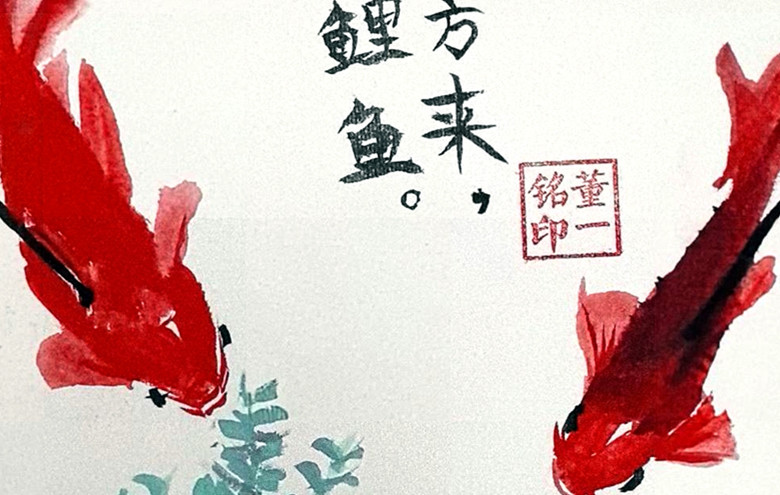 方来，
鲤鱼。
董一
铭印